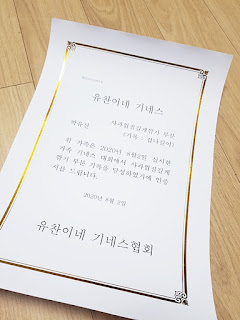 유찬이네 기네스
박유선 사과껍질길게깎기 부문
(기록 : 겁나길어)
위 가족은 2020년 8월2일 실시한
가족 기네스 대회에서 사과껍질길게
깎기 부문 기록을 달성하였기에 인증
서를 드립니다.
2020년 8월 2일
유찬이네 기네스협회